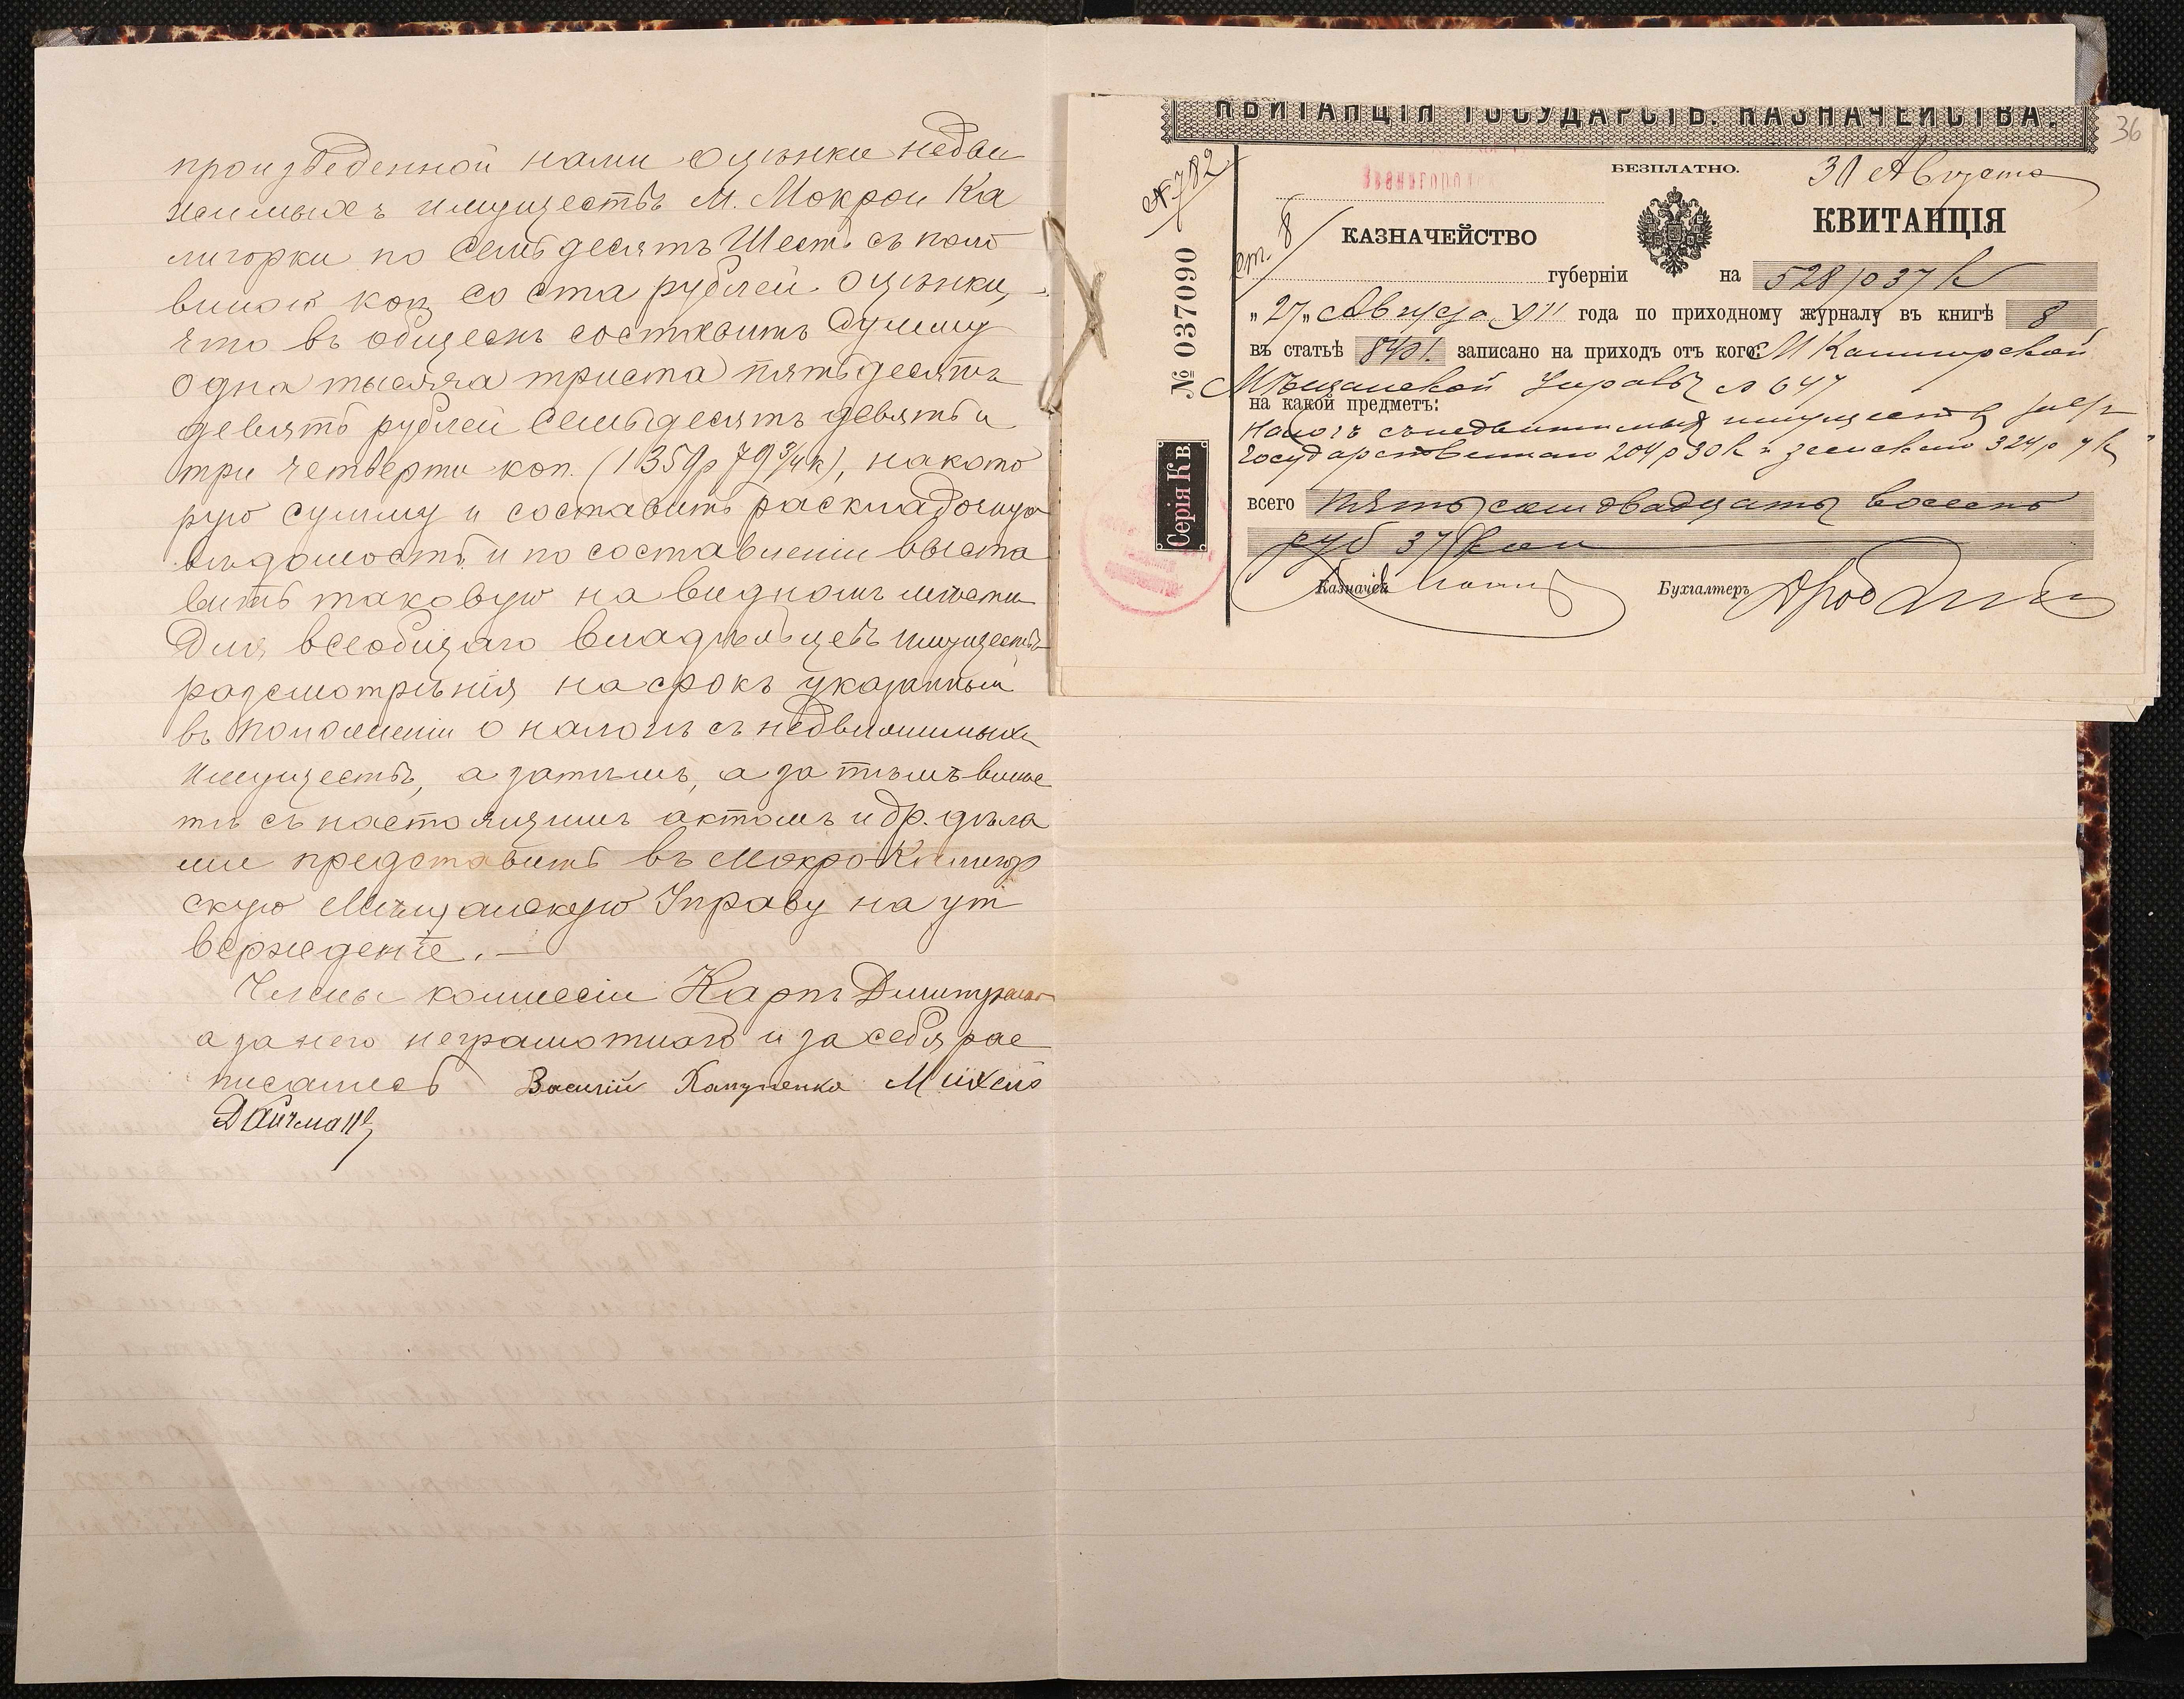 произведенной нами оцѣнки недви
жимыхъ имуществъ М. Мокрой Ка
лигорки по семьдесятъ шесть съ поло
виной коп. со ста рублей оцѣнки,
что въ общемъ составитъ сумму
одна тысяча триста пятьдесятъ
девять рублей семьдесятъ девять и
три четверти коп. (1359р 79 3/4 к), на кото
рую сумму и составить раскладочную
вѣдомость и по составленіи выста
вить таковую на видномъ мѣсти
для всеобщаго владѣльцевъ имуществъ
разсмотрѣнія на срокъ указанный
въ положеніи о налогѣ съ недвижимыхъ
имуществъ, а затѣмъ, а за тѣмъ вмѣс
тѣ съ настоящимъ актомъ и др. дѣла
ми представить въ Мокро-Калигор
скую Мѣщанскую Управу на ут
вержденіе.—
Члены коммесіи Карпъ Димитренко
а за него неграмотнаго и за себя рас
писались Василій Михель
Дайчманъ
КВИТАНЦІЯ ГОСУДАРСТВ. КАЗНАЧЕЙСТВА.
36
№ 782
БЕЗПЛАТНО.
31 Августа
Звенигородск
ст. 8
КАЗНАЧЕЙСТВО
КВИТАНЦІЯ
губерніи на 528 р 37 к
№ 037090
"27" Августа 1911 года по приходному журналу въ книгѣ 8
въ статьѣ 8401. записано на приходъ отъ кого: М Калигорской
Мѣщанской Управѣ № 647
на какой предметъ:
налогъ съ недвижимыхъ имуществъ
государственнаго 204 р 30 к и земскаго 324 р 7 к
Серія Кв
всего пятьсотъ двадцать восемь
руб 37 коп
Казначей
Бухгалтеръ